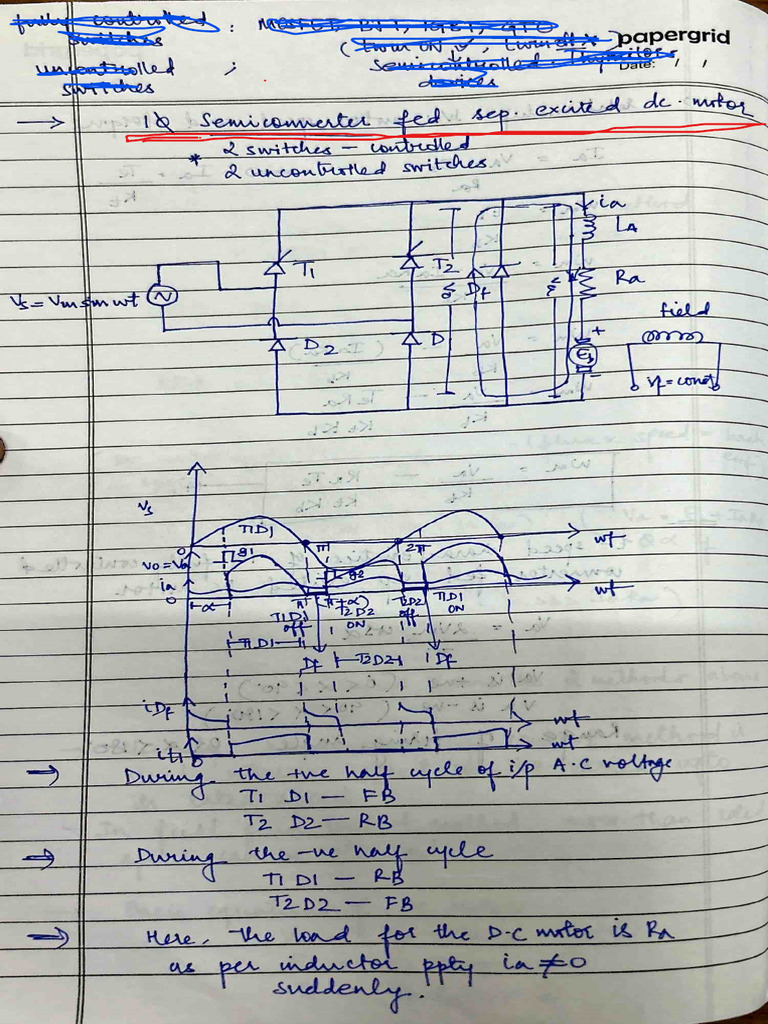 fully controlled : MOSFET BJT, IGBT, GTO
switches (turn ON ✓, turn off ×) papergrid
uncontrolled ; semicontrolled - Thyristor Date: , ,
switches devices
→ 1ϕ Semiconverter fed sep. excited dc. motor
* 2 switches - controlled
2 uncontrolled switches
ia
LA
T1 T2 Df Ra
Vs = Vm sin wt
field
D2 D +
Eb
- Vf = const
Vs T1D1
0 π 2π wt
vo = Va
ia
0 wt
α π (π+α) T2D2 T1D1
T1D1 off T2D2 ON off ON
T1D1 Df T2D2 Df
iDf wt
iT1 wt
0
→ During the +ve half cycle of i/p A.C voltage
T1 D1 — FB
T2 D2 — RB
→ During the -ve half cycle
T1 D1 — RB
T2 D2 — FB
→ Here, the load for the D.C motor is Ra
as per inductor ppty ia ≠ 0
suddenly.